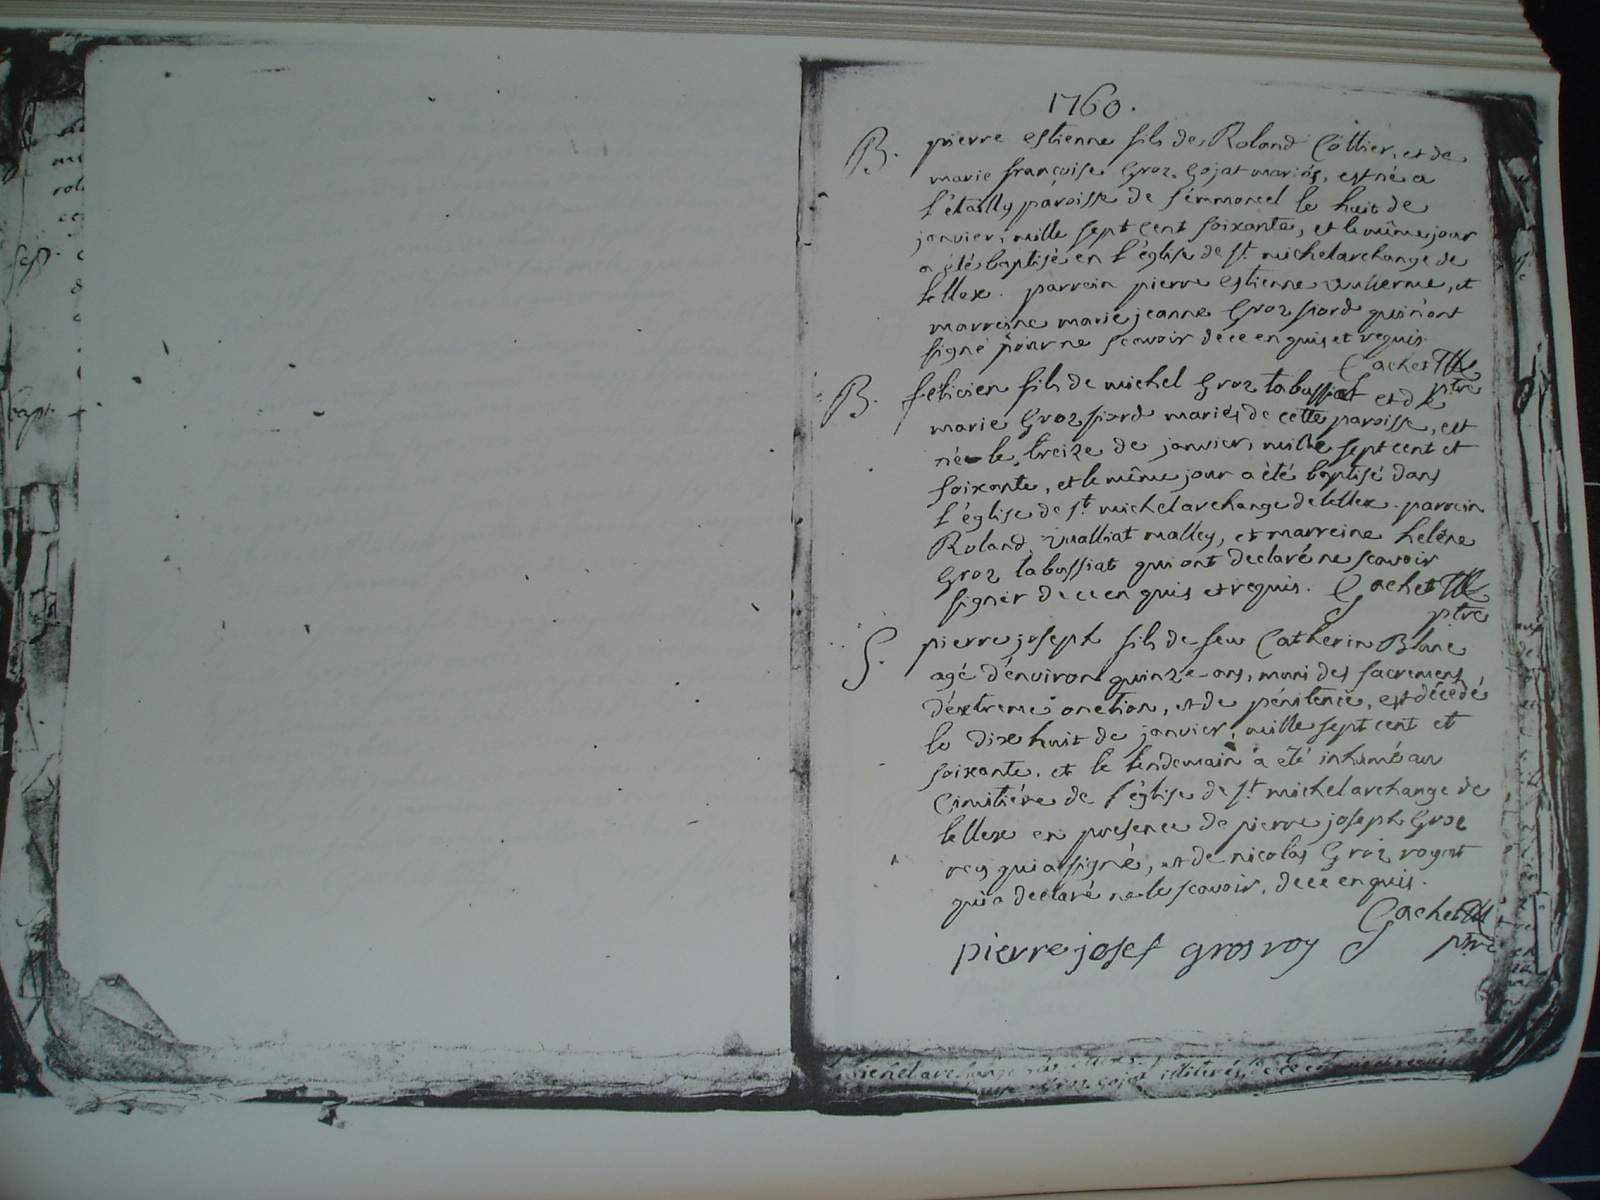 1760.
B. pierre estienne fils de Roland Cottier, et de
marie françoise Groz Gojat mariés, est né a
paroisse de septmoncel le huit de
janvier, mille sept cent soixante, et le même jour
a été baptisé en l'église de st michel archange de
lellex. parrein pierre estienne vuillerme, et
marreine marie jeanne Groz fiard qui n'ont
signé pour ne scavoir de ce enquis et requis.
Gachet
ptre
B. felicien fils de michel Groz tabussiat et de
marie Groz fiard mariés de cette paroisse, est
né le treize de janvier, mille sept cent et
soixante, et le même jour a été baptisé dans
l'église de st michel archange de lellex. parrein
Roland vualliat malley, et marreine helène
Groz tabussiat qui ont declaré ne scavoir
signer de ce enquis et requis. Gachet
ptre
S. pierre joseph fils de feu Catherin Blanc
agé d'environ quinze ans, muni des sacremens
d'extreme onction, et de pénitence, est décédé
le dixe huit de janvier, mille sept cent et
soixante, et le lendemain a été inhumé au
cimitière de l'église de st michel archange de
lellex en presence de pierre joseph Groz
roy qui a signé, et de nicolas Groz
qui a declaré ne le scavoir, de ce enquis.
Gachet
pierre josef grosroy ptre